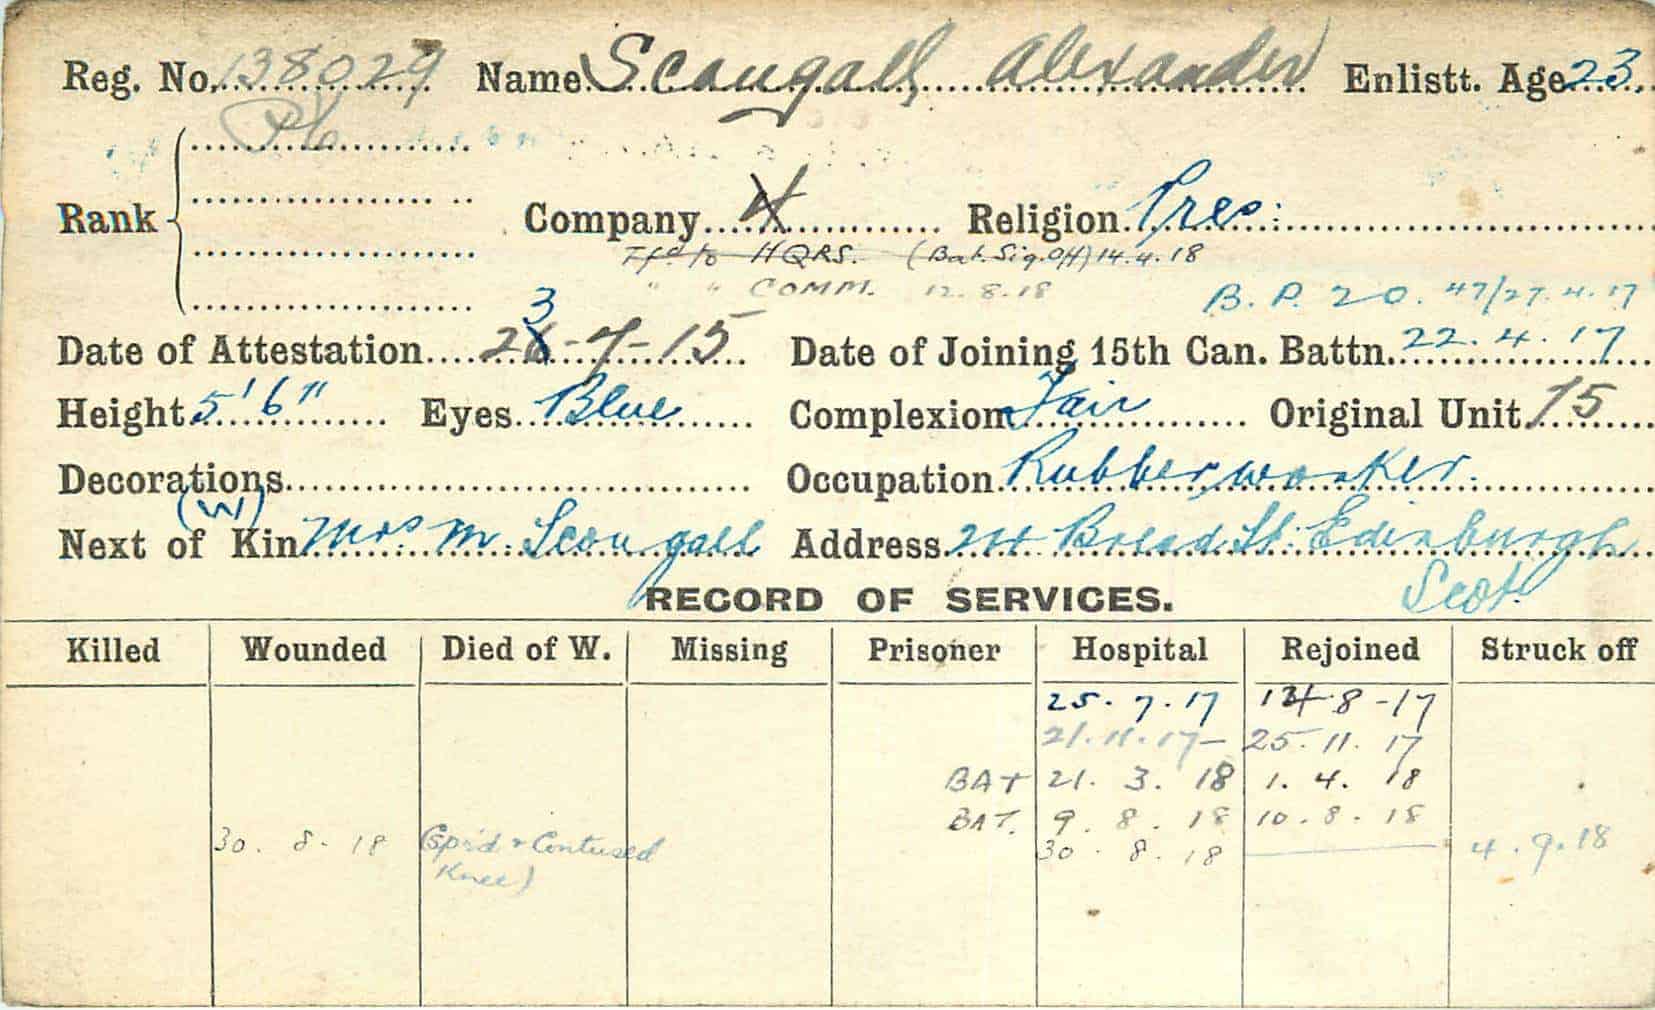 Reg. No. 138029 Name Scougall, Alexander Enlistt. Age 23
Pte
Rank Company 4 Religion Pres:
Tfd. to HQRS. (Bat. Sig. Off) 14.4.18
" " COMM. 12.8.18
B. P. 20. 47/27.4.17
3
Date of Attestation 26-7-15 Date of Joining 15th Can. Battn. 22.4.17
Height 5' 6" Eyes Blue Complexion Fair Original Unit 75
Decorations Occupation Rubber worker.
(W)
Next of Kin Mrs. M. Scougall Address 24 Bread St. Edinburgh
Scot.
RECORD OF SERVICES.
Killed Wounded Died of W. Missing Prisoner Hospital Rejoined Struck off
25.7.17 -8-17
21.11.17- 25.11.17
BAT 21.3.18 1.4.18
BAT. 9.8.18 10.8.18
30.8.18 (Sp'd & Contused 30.8.18 4.9.18
Knee)